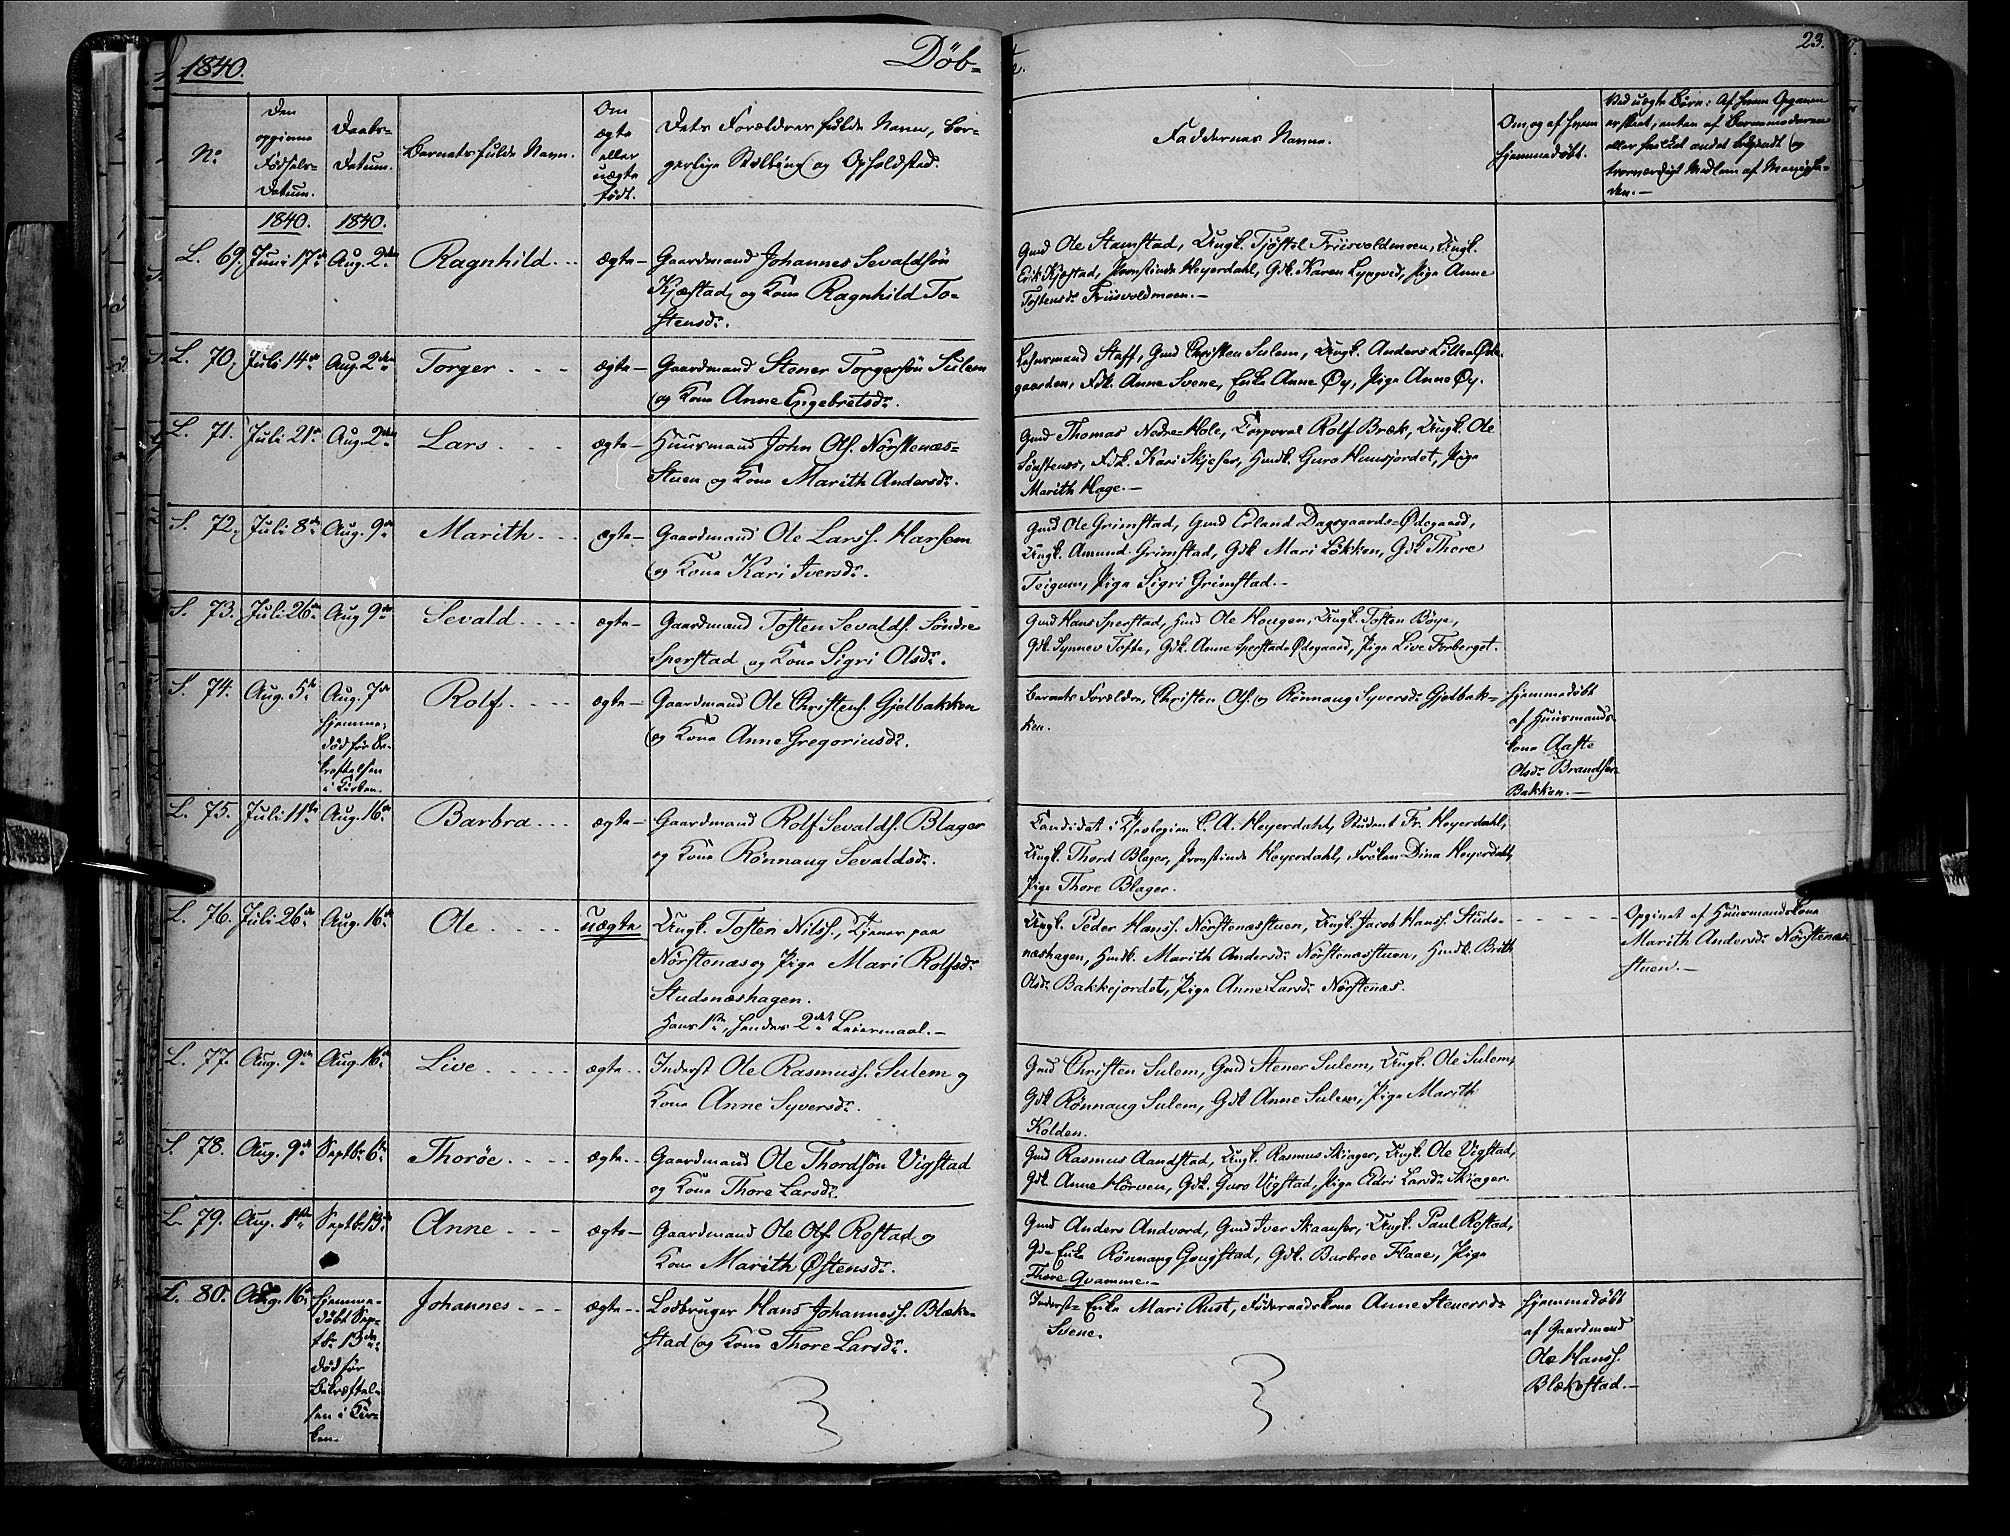 1840.
Døb-
te.
23.
No
Den opgivne Fødsels-Datum.
Daabs-Datum.
Barnets fulde Navn.
Om ægte eller uægte født.
Dets Forældres fulde Navn, bor-
gerlige Stilling og Opholdsted.
Faddernes Navne.
Om og af hvem
hjemmedøbt.
Ved uægte Børn: Af hvem Opgaven
er skeet, enten af Barnemoderen
eller hvilket andet bekjendt og
troværdigt Medlem af Menighe-
den.-
1840. 1840.
L. 69. Juni 17de Aug. 2den Ragnhild ægte Gaardmand Johannes Sevaldsøn
Kjæstad og Kone Ragnhild To-
stensdr.
Gmd Ole Stamstad, Ungk. Tjøstel Friisvoldmoen, Ungk.
Erik Kjøstad, Provstinde Heyerdahl, Gdk. Karen Lyngved, Pige Anne
Tostensdr Friisvoldmoen.-
L. 70. Juli 14de Aug. 2den Torger ægte Gaardmand Stener Torgersøn Sulem
og Kone Anne Engebretsdr.
Lehnsmand Staff, Gmd Christen Sulem, Ungk. Anders LilleøØde-
gaarden, Fdk. Anne Svene, Enke Anne Øy, Pige Anne Øy.
L. 71. Juli 21de Aug. 2den Lars ægte Huusmand John Ols. Nørstenæs-
Stuen og Kone Marith Andersdr.
Gmd Thomas Nedre-Hole, Corporal Rolf Bræk, Ungk. Ole
Sønstenes, Fdk. Kari Skjefer, Hmdk. Guro Huusjordet, Pige
Marith Hage.-
S. 72. Juli 8de Aug. 9de Marith ægte Gaardmand Ole Larss. Harsem
og Kone Kari Iversdr.
Gmd Ole Grimstad, Gmd Erland Dagsgaards-Ødegaard,
Ungk. Amund Grimstad, Gdk Mari Løkken, Gdk Thore
Teigum, Pige Sigri Grimstad.-
S. 73. Juli 26de Aug 9de Sevald ægte Gaardmand Tosten Sevalds. Søndre
Sperstad og Kone Sigri Olsdr.
Gmd Hans Sperstad, Hmd Ole Haugen, Ungk. Tosten Bøye,
Gdk. Synnev Tofte, Gdk. Anne Sperstad-Ødegaard, Pige Live Forberget.
S. 74. Aug. 5te Aug. 7de
hjemme;
død før Be-
kræftelsen
i Kirken. Rolf ægte Gaardmand Ole Christens. Gjelbakken
og Kone Anne Gregoriusdr.
Barnets Forældre, Christen Ols. og Rønnaug Syversdr Gjelbak-
ken.
hjemmedøbt
af Huusmands-
kone Aaste
Olsdr Brandser-
Bakken.-
L. 75. Juli 11te Aug. 16de Barbra ægte Gaardmand Rolf Sevalds. Blager
og Kone Rønnaug Sevaldsdr.
Candidat i Theologien C. A. Heyerdahl, Student Fr. Heyerdahl,
Ungk. Thord Blager, Provstinde Heyerdahl, Frøken Dina Heyerdahl,
Pige Thore Blager.
L. 76. Juli 26de Aug. 16de Ole uægte Ungk. Tosten Nilss., Tjener paa
Nørstenæs og Pige Mari Rolfsdr
Studsnæshagen.
Hans 1ste, hendes 2det Leiermaal.-
Ungk. Peder Hanss. Nørstenæsstuen, Ungk. Jacob Hanss. Studs-
næshagen, Hmdk. Marith Andersdr Nørstenæsstuen, Hmdk. Brith
Olsdr Bakkejordet, Pige Anne Larsdr Nørstenæs.
Opgivet af Huusmandskone
Marith Andersdr Nørstenæs-
stuen.-
L. 77. Aug. 9de Aug. 16de Live ægte Inderst Ole Rasmuss. Sulem og
Kone Anne Syversdr.
Gmd Christen Sulem, Gmd Stener Sulem, Ungk. Ole Sulem,
Gdk Rønnaug Sulem, Gdk Anne Sulem, Pige Marith
Kolden.
S. 78. Aug. 9de Septbr 6te Thoröe ægte Gaardmand Ole Thordsøn Vigstad
og Kone Thore Larsdr.
Gmd Rasmus Aandstad, Ungk. Rasmus Skiager, Ungk. Ole Vigstad,
Gdk. Anne Horven, Gdk. Guro Vigstad, Pige Eldri Larsdr Skiager.
L. 79. Aug. 1ste Septbr 13de Anne ægte Gaardmand Ole Ols. Rostad og
Kone Marith Østensdr.
Gmd Anders Andvord, Gmd Iver Skaanser, Ungk. Paul Rostad,
Gde Enke Rønnaug Gougstad, Gdk. Barbroe Flaae, Pige
Thore Qvamme.-
L. 80. Aug. 16de hjemme-
døbt Sep-
tbr 13de,
død før
Bekræftel-
sen i Kir-
ken. Johannes ægte Lodbruger Hans Johanness. Blæke-
stad og Kone Thore Larsdr.
Inderst- Enke Mari Rust, Føderaadskone Anne Stenersdr
Svene.
hjemmedøbt
af Gaardmand
Ole Hanss.
Blækestad.-